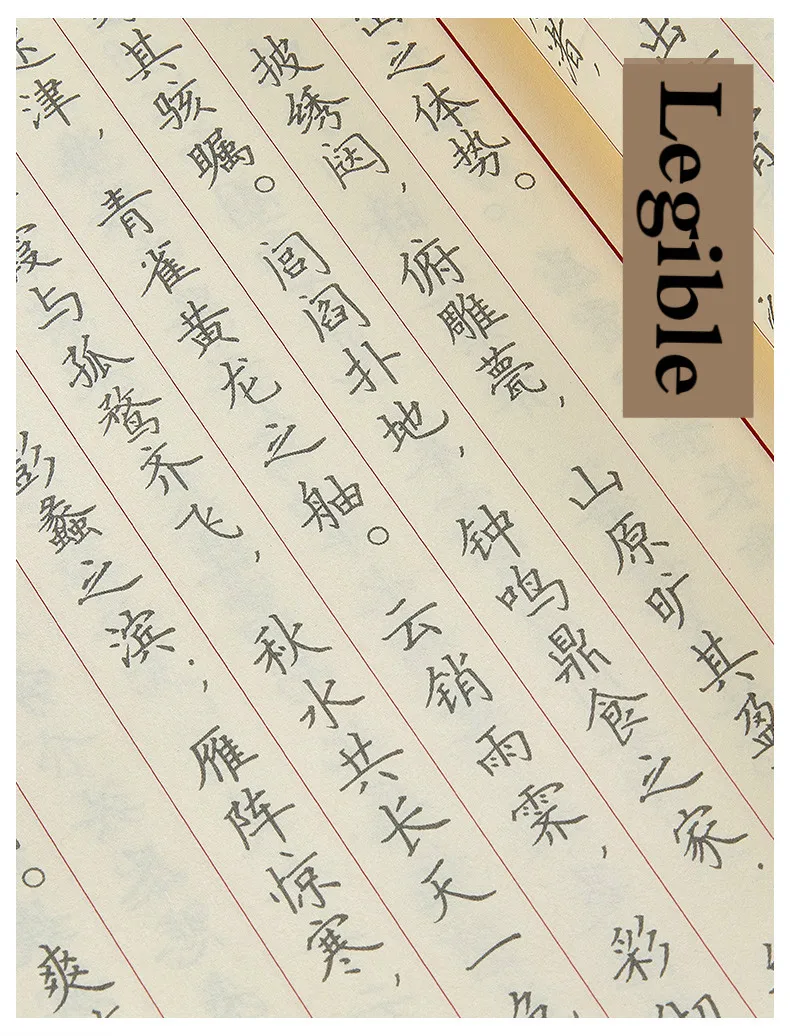 之体势。
披绣闼，俯雕甍，山原旷其盈
其骇瞩。闾阎扑地，钟鸣鼎食之家．
津，青雀黄龙之舳。云销雨霁，彩彻
霞与孤鹜齐飞，秋水共长天一色
彭蠡之滨．雁阵惊寒，
。爽
Legible